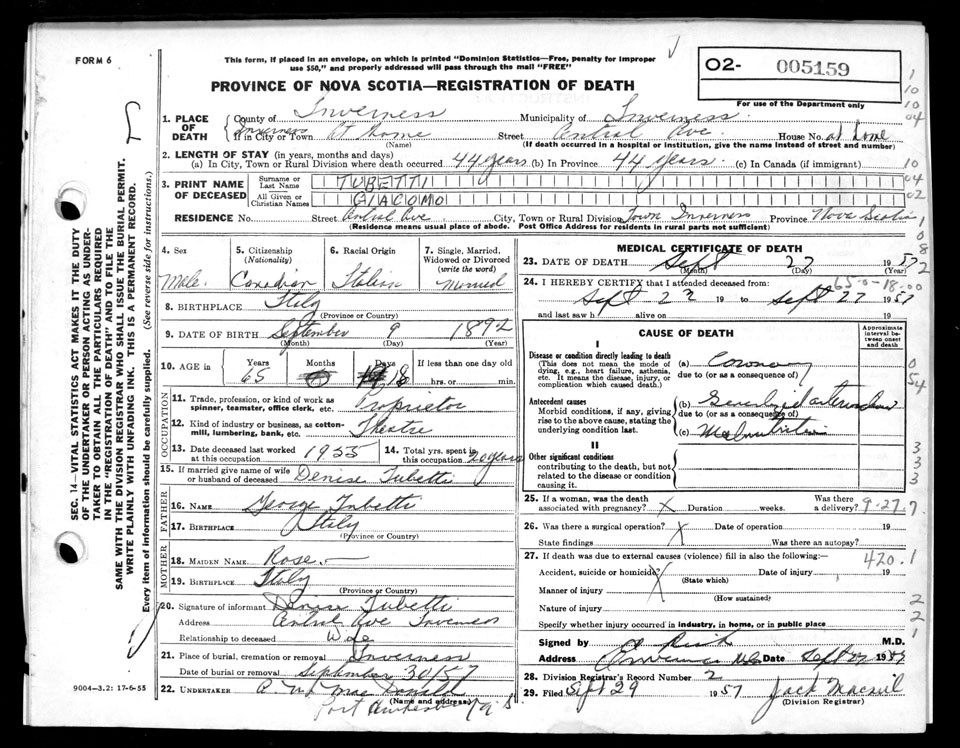 FORM 6
This form, if placed in an envelope, on which is printed "Dominion Statistics—Free, penalty for improper
use $50," and properly addressed will pass through the mail "FREE"
O2- 005159
For use of the Department only
PROVINCE OF NOVA SCOTIA—REGISTRATION OF DEATH
1. PLACE OF DEATH County of Inverness Municipality of Inverness
If in City or Town Inverness At home Street Central Ave House No. at home
(Name) (If death occurred in a hospital or institution, give the name instead of street and number)
2. LENGTH OF STAY (in years, months and days)
(a) In City, Town or Rural Division where death occurred 44 years (b) In Province 44 years. (c) In Canada (if immigrant)
3. PRINT NAME OF DECEASED Surname or Last Name TUBETTI
All Given or Christian Names GIACOMO
RESIDENCE No. Street Central Ave City, Town or Rural Division Town Inverness Province Nova Scotia
(Residence means usual place of abode. Post Office Address for residents in rural parts not sufficient)
4. Sex Male
5. Citizenship (Nationality) Canadian
6. Racial Origin Italian
7. Single, Married, Widowed or Divorced (write the word) Married
8. BIRTHPLACE Italy
(Province or Country)
9. DATE OF BIRTH September 9 1892
(Month) (Day) (Year)
10. AGE in Years 65 Months Days 18 If less than one day old hrs. or min.
OCCUPATION
11. Trade, profession, or kind of work as spinner, teamster, office clerk, etc. Proprietor
12. Kind of industry or business, as cotton-mill, lumbering, bank, etc. Theatre
13. Date deceased last worked at this occupation 1955
14. Total yrs. spent in this occupation 20 years
15. If married give name of wife or husband of deceased Denise Tubetti
FATHER
16. NAME George Tubetti
17. BIRTHPLACE Italy
(Province or Country)
MOTHER
18. MAIDEN NAME Rose
19. BIRTHPLACE Italy
(Province or Country)
20. Signature of informant Denise Tubetti
Address Central Ave Inverness
Relationship to deceased Wife
21. Place of burial, cremation or removal Inverness
Date of burial or removal September 30/57
22. UNDERTAKER MacDonald
(Name and address)
Port Hawkesbury N.S.
MEDICAL CERTIFICATE OF DEATH
23. DATE OF DEATH Sept 27 1957
(Month) (Day) (Year)
24. I HEREBY CERTIFY that I attended deceased from:
65-0-18.00
Sept 22 19 to Sept 27 1957
and last saw h alive on 19
CAUSE OF DEATH
Approximate interval between onset and death
I
Disease or condition directly leading to death
(This does not mean the mode of dying, e.g., heart failure, asthenia, etc. It means the disease, injury, or complication which caused death.)
(a) Coronary
due to (or as a consequence of)
Antecedent causes
Morbid conditions, if any, giving rise to the above cause, stating the underlying condition last.
(b) Generalized
due to (or as a consequence of)
(c) Malnutrition
II
Other significant conditions
contributing to the death, but not related to the disease or condition causing it.
25. If a woman, was the death associated with pregnancy? X Duration weeks. Was there a delivery? 9-27.7
26. Was there a surgical operation? X Date of operation 19
State findings Was there an autopsy?
27. If death was due to external causes (violence) fill in also the following:
420.1
Accident, suicide or homicide? X Date of injury 19
(State which)
Manner of injury
(How sustained)
Nature of injury
Specify whether injury occurred in industry, in home, or in public place
Signed by M.D.
Address Inverness N.S. Date Sept 27 1957
28. Division Registrar's Record Number 2
29. Filed Sept 29 1957 Jack Macneil
(Division Registrar)
9004-3.2: 17-6-55
SEC. 14—VITAL STATISTICS ACT MAKES IT THE DUTY
OF THE UNDERTAKER OR PERSON ACTING AS UNDER-
TAKER TO OBTAIN ALL THE PARTICULARS REQUIRED
IN THE "REGISTRATION OF DEATH" AND TO FILE THE
SAME WITH THE DIVISION REGISTRAR WHO SHALL ISSUE THE BURIAL PERMIT.
WRITE PLAINLY WITH UNFADING INK. THIS IS A PERMANENT RECORD.
Every item of information should be carefully supplied. (See reverse side for instructions.)